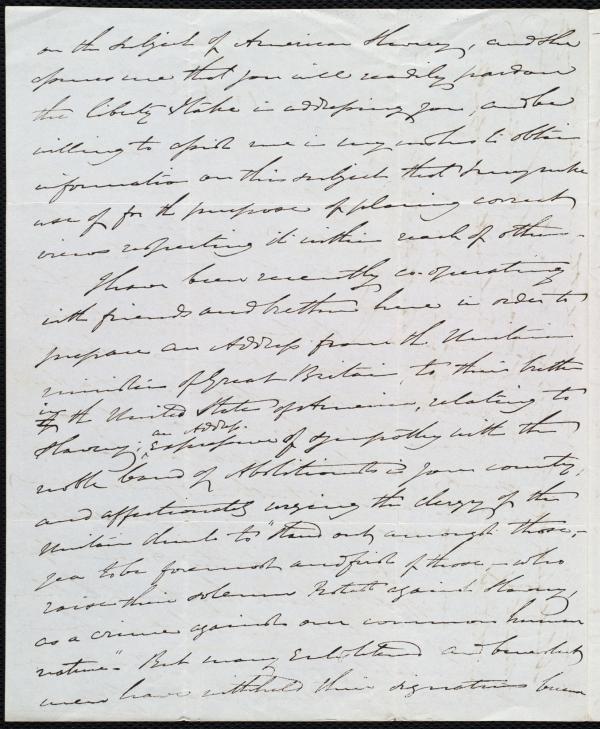 on the subject of American Slavery, and she
assures me that you will readily pardon
the liberty I take in addressing you, and be
willing to assist me in my wishes to obtain
information on this subject that I may make
use of for the purpose of placing correct
views respecting it within reach of others.
I have been recently co-operating
with friends and brethren here in order to
prepare an Address from the Unitarian
ministers of Great Britain, to their brethren
in the United States of America, relating to
Slavery; an Address expressive of sympathy with the
noble band of Abolitionists in your country,
and affectionately urging the clergy of the
Unitarian church to "stand out amongst those,—
yea to be foremost and first of those,— who
raise their solemn Protest against Slavery,
as a crime against our common human
nature". But many enlightened and benevolent
men have withheld their signatures because